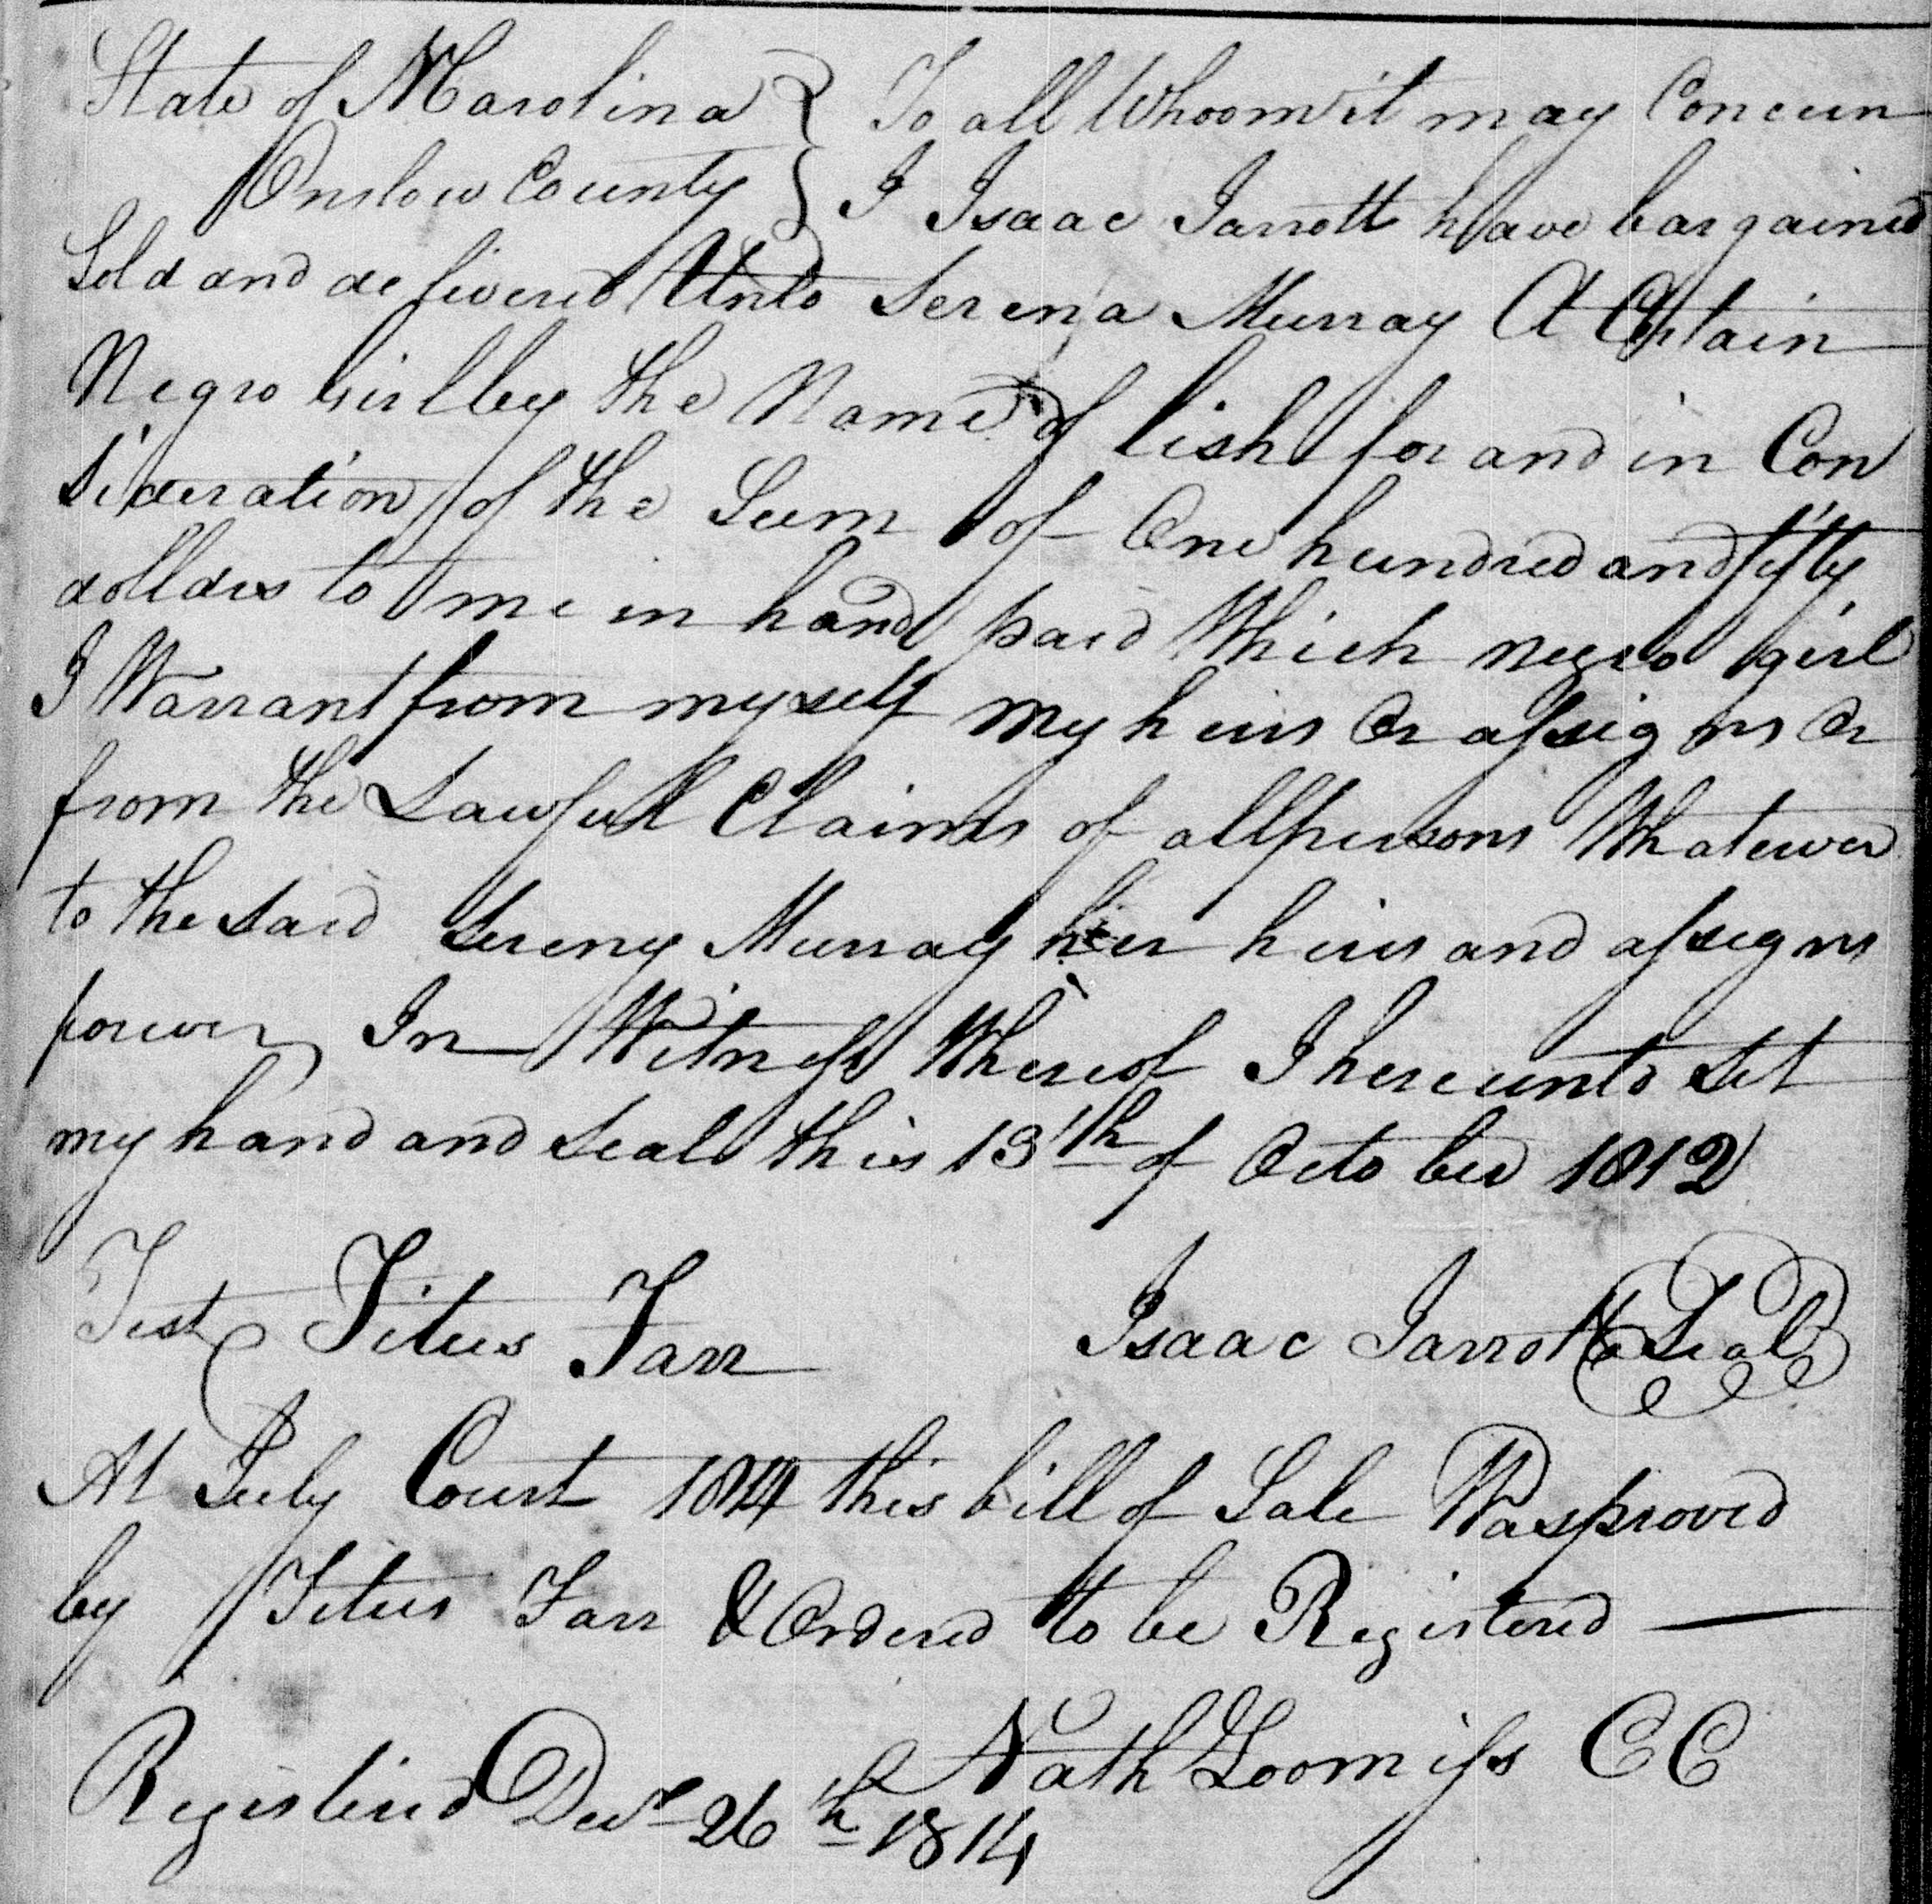 State of NCarolina } To all Whoom it may Concern
Onslow County } I Isaac Jarrott have bargained
Sold and delivered Unto Serena Murray A Certain
Negro Girl by the Name of lish for and in Con
sideration of the Sum of One hundred and fifty
dolldrs to me in hand paid Which negro girl
I Warrant from myself my heirs Or assigns Or
from the Lawfull Claims of all persons Whatever
to the said Sereny Murray her heirs and assigns
forever, In Witness Whereof I hereunto Set
my hand and Seal this 13th of October 1812
Test Titus Farr Isaac Jarrott Seal
At July Court 1814 this bill of Sale Was proved
by Titus Farr & Ordered to be Registered —
Nath Loomiss CC
Registered Decr 26th 1814